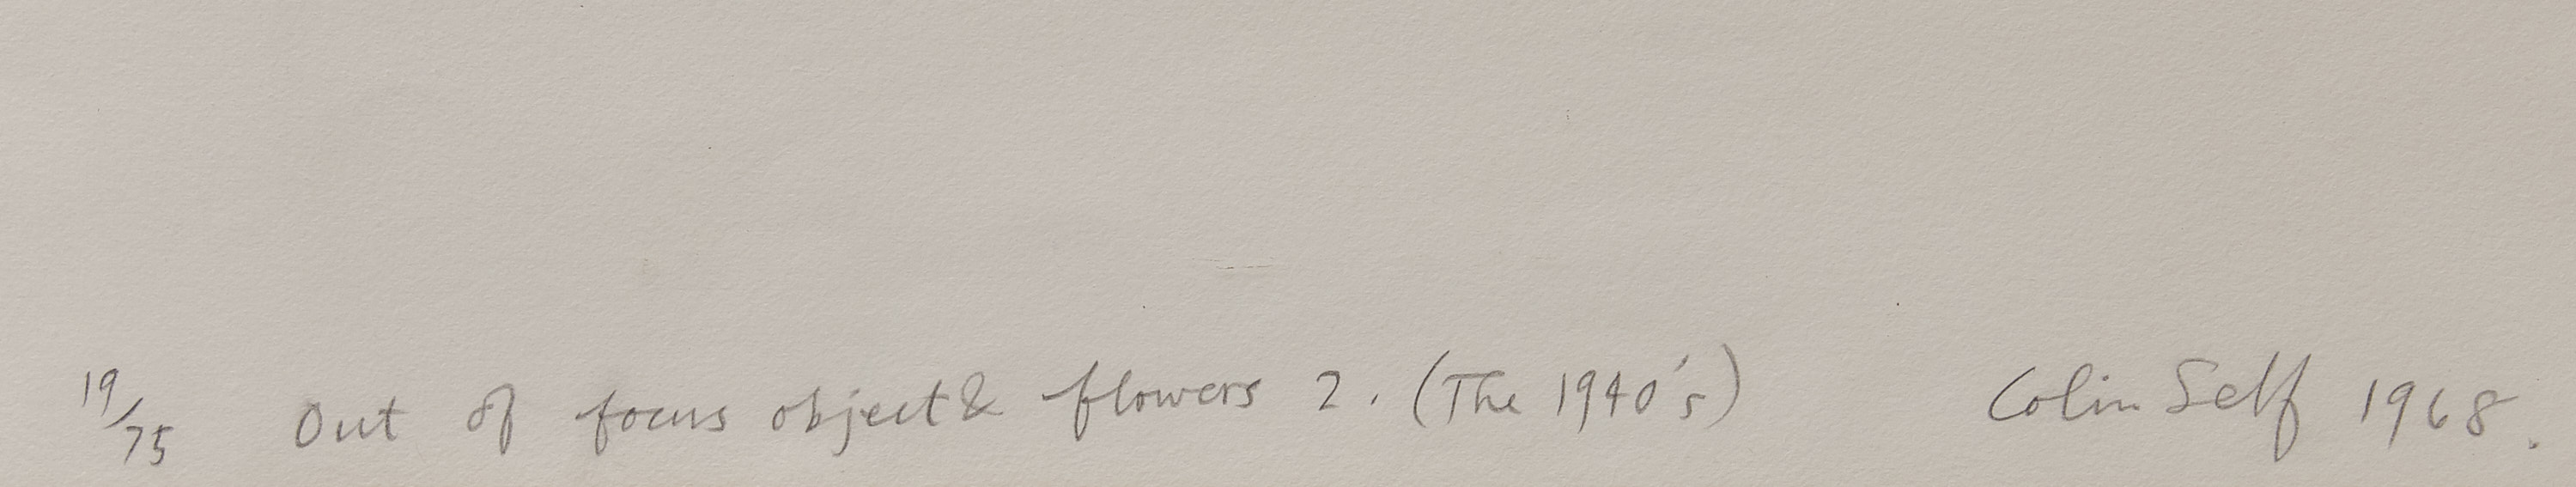 19/75 Out of focus object & flowers 2. (The 1940's) Colin Self 1968.